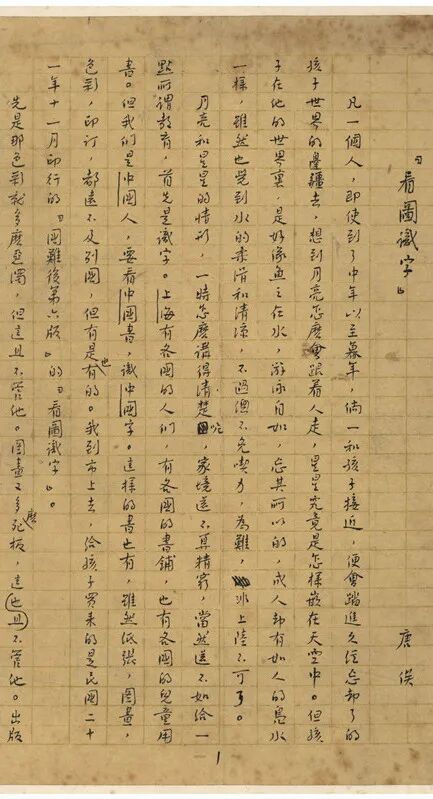 「看圖識字」
唐俟
凡一個人,即使到了中年以至暮年,倘一和孩子接近,便會踏進久經忘却了的
孩子世界的邊疆去,想到月亮怎麽會跟着人走,星星究竟是怎樣嵌在天空中。但孩
子在他的世界裏,是好像魚之在水,游泳自如,忘其所以的,成人却有如人的鳧水
一樣,雖然也覺到水的柔滑和清涼,不過總不免喫力,為難,非上陸不可了。
月亮和星星的情形,一時怎麽講得清楚呢,家境還不算精窮,當然還不如給一
點所謂教育,首先是識字。上海有各國的人們,有各國的書鋪,也有各國的兒童用
書。但我們是中國人,要看中國書,識中國字。這樣的書也有,雖然紙張,圖畫,
色彩,印訂,都遠不及別國,但有是也有的。我到市上去,給孩子買來的是民國二十
一年十一月印行的「國難後第六版」的「看圖識字」。
先是那色彩就多麽惡濁,但這且不管他。圖畫又多麽死板,這也且不管他。出版
1